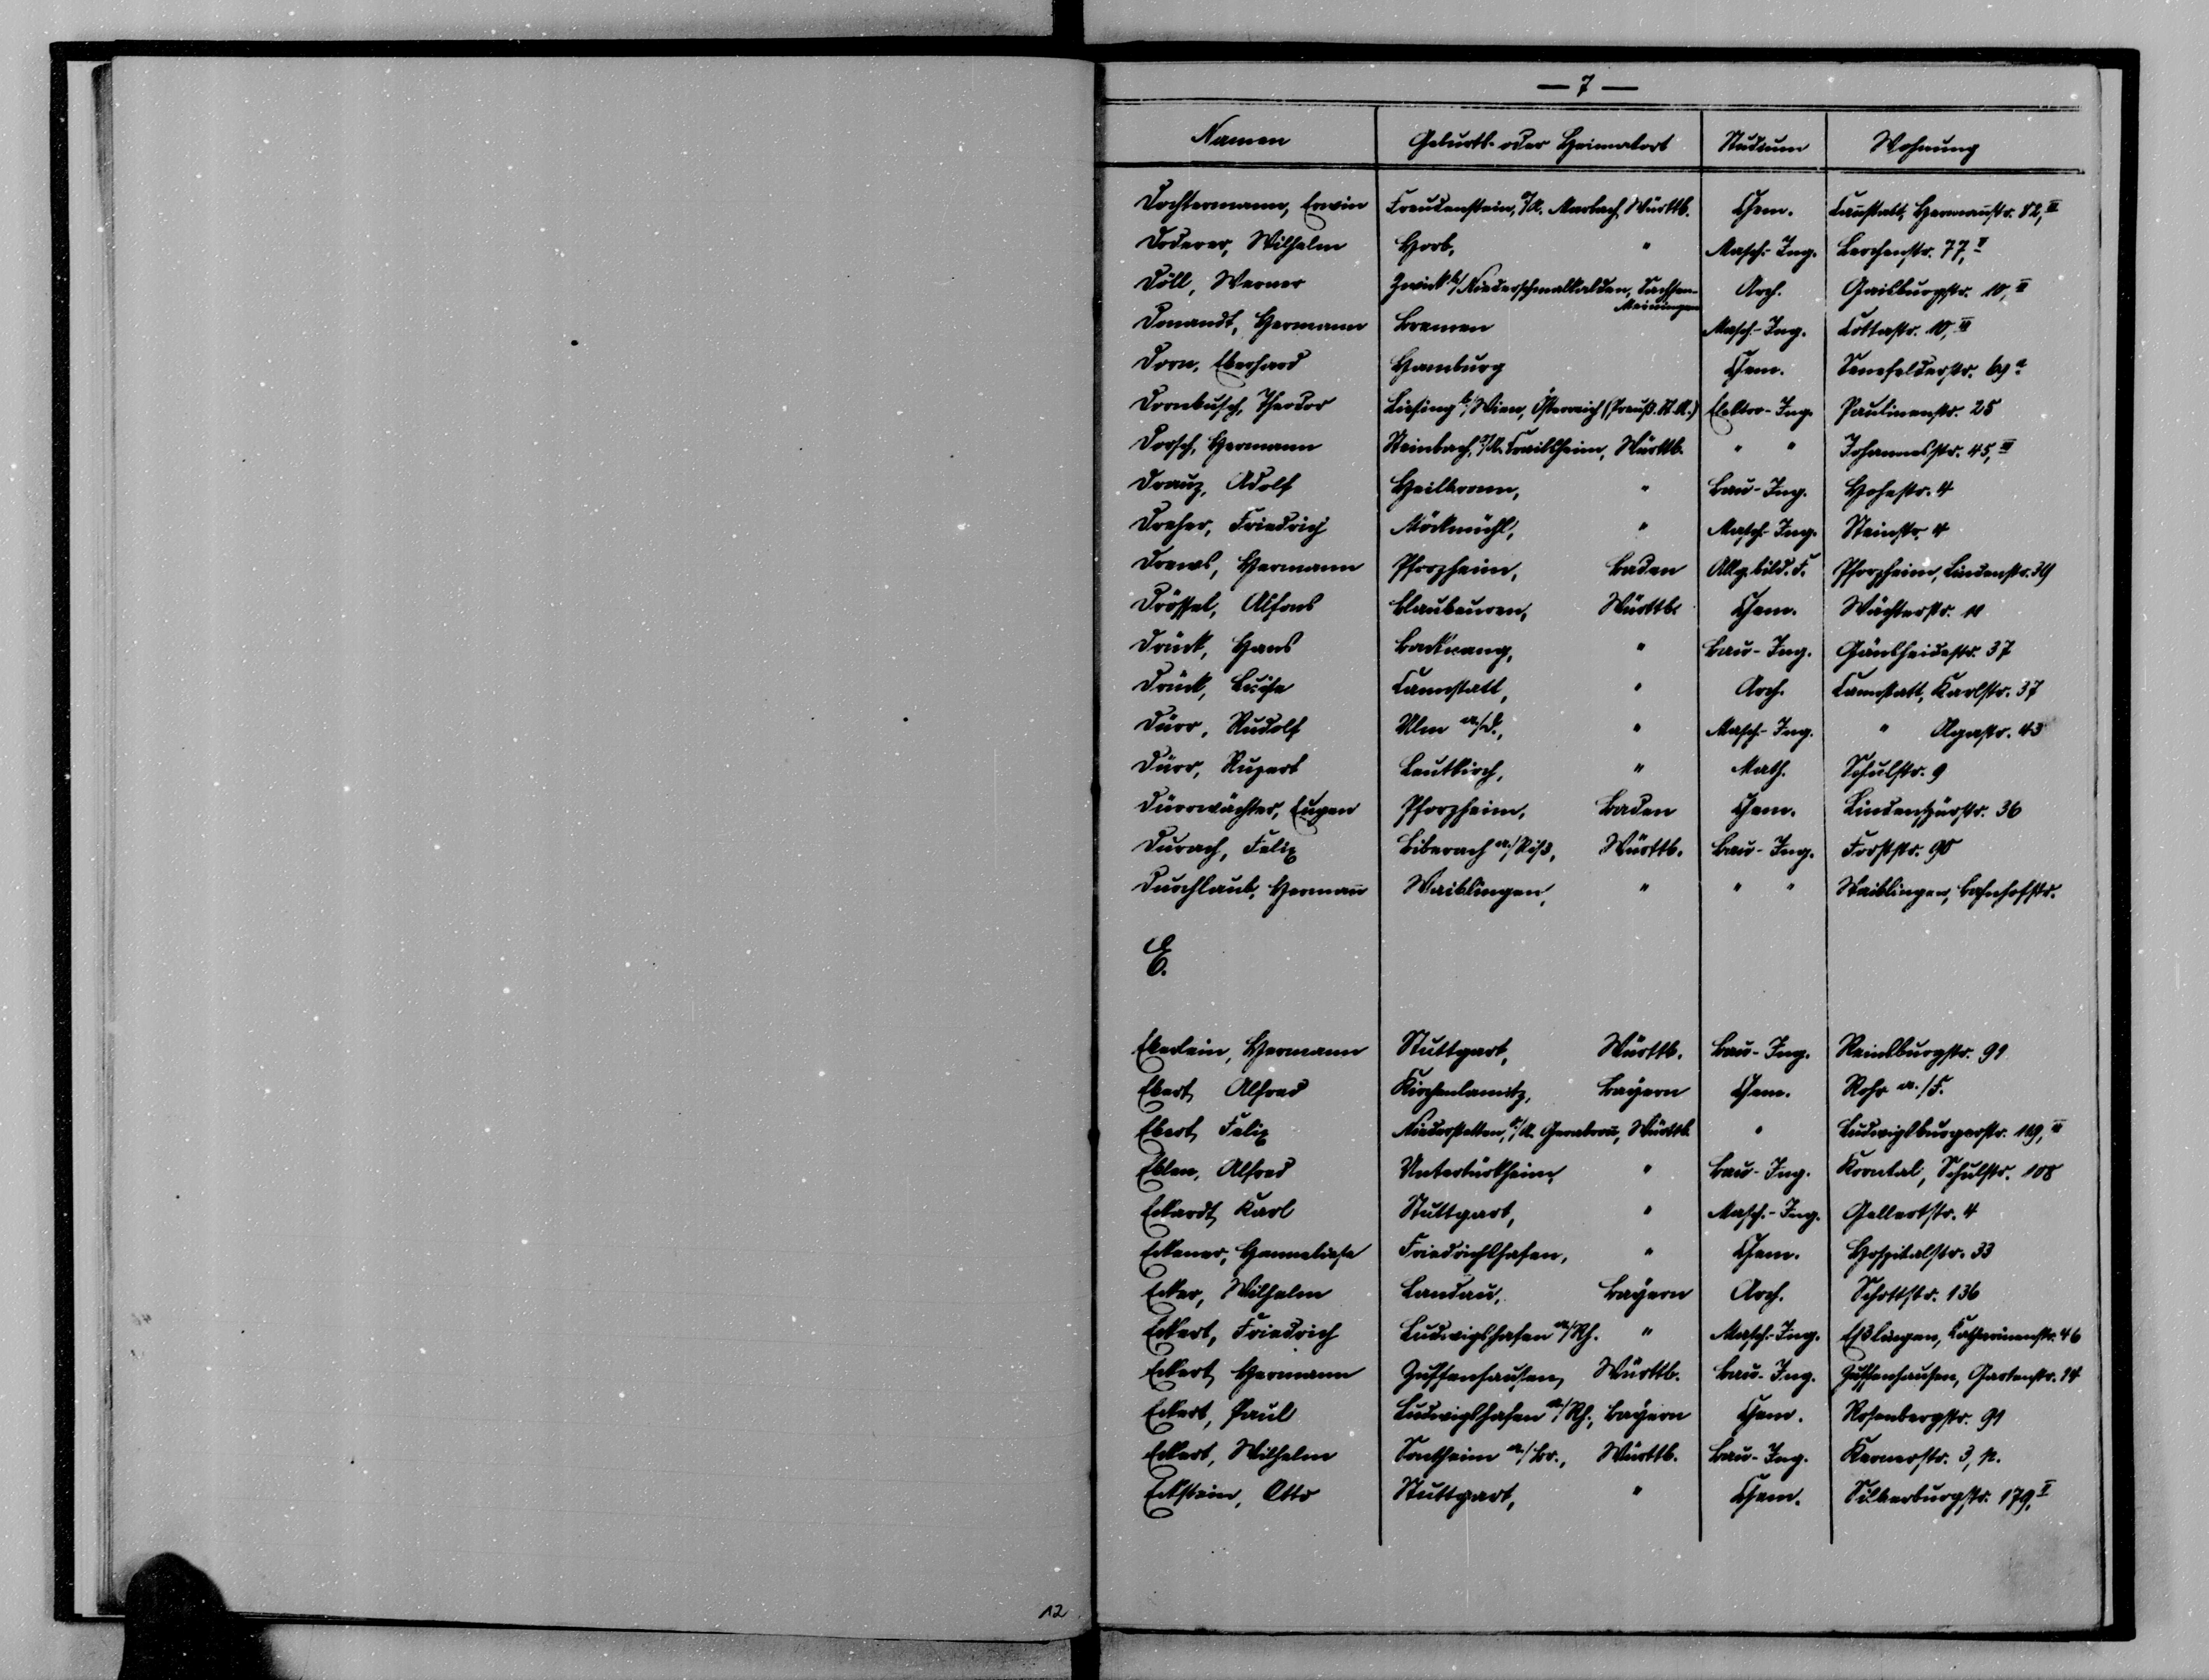 — 7 —
Namen Geburts- oder Heimatort Studium Wohnung
Dochtermann, Erwin Freudenstein, O/A. Marbach, Württb. Chem. Cannstatt, Hermannstr. 82, II
Doderer, Wilhelm Horb, " Masch.-Ing. Lerchenstr. 77, I
Döll, Werner Zwick b/ Niederschmalkalden, Sachsen- Arch. Gaisburgstr. 10, II
Meiningen
Donandt, Hermann Bremen Masch.-Ing. Cottastr. 10, III
Dorn, Eberhard Hamburg Chem. Senefelderstr. 69 a
Dornbusch, Theodor Liesing b/ Wien, Österreich (Preuß. St. A.) Elektro-Ing. Paulinenstr. 25
Dorsch, Hermann Steinbach, O/A. Crailsheim, Württb. " " Johannesstr. 45, III
Drauz, Adolf Heilbronn, " Bau-Ing. Hohestr. 4
Dreher, Friedrich Möckmühl, " Masch.-Ing. Steinstr. 4
Drews, Hermann Pforzheim, Baden Allg. bild. F. Pforzheim, Lindenstr. 39
Drössel, Alfons Blaubeuren, Württb. Chem. Wächterstr. 11
Drück, Hans Backnang, " Bau-Ing. Gänsheidestr. 37
Drück, Luise Cannstatt, " Arch. Cannstatt, Karlstr. 37
Dürr, Rudolf Ulm a/D., " Masch.-Ing. " Olgastr. 43
Dürr, Rupert Leutkirch, " Math. Schulstr. 9
Dürrwächter, Eugen Pforzheim, Baden Chem. Lindenspürstr. 36
Durach, Felix Biberach a/Riß, Württb. Bau-Ing. Forststr. 90
Durchlaub, Hermann Waiblingen, " " " Waiblingen, Bahnhofstr.
E.
Eberlein, Hermann Stuttgart, Württb. Bau-Ing. Reinsburgstr. 91
Ebert, Alfred Kirchenlamitz, Bayern Chem. Rohr a./F.
Ebert, Felix Niederstetten, O/A. Gerabronn, Württb. " Ludwigsburgerstr. 119, II
Eblen, Alfred Untertürkheim, " Bau-Ing. Korntal, Schulstr. 108
Eckardt, Karl Stuttgart, " Masch.-Ing. Gellertstr. 4
Eckener, Hanneliese Friedrichshafen, " Chem. Hospitalstr. 33
Ecker, Wilhelm Landau, Bayern Arch. Schottstr. 136
Eckert, Friedrich Ludwigshafen a/Rh. " Masch.-Ing. Eßlingen, Katharinenstr. 46
Eckert, Hermann Zuffenhausen, Württb. Bau-Ing. Zuffenhausen, Gartenstr. 14
Eckert, Paul Ludwigshafen a/Rh., Bayern Chem. Rosenbergstr. 91
Eckert, Wilhelm Sontheim a/Br., Württb. Bau-Ing. Kernerstr. 3, p.
Eckstein, Otto Stuttgart, " Chem. Silberburgstr. 179, I
12